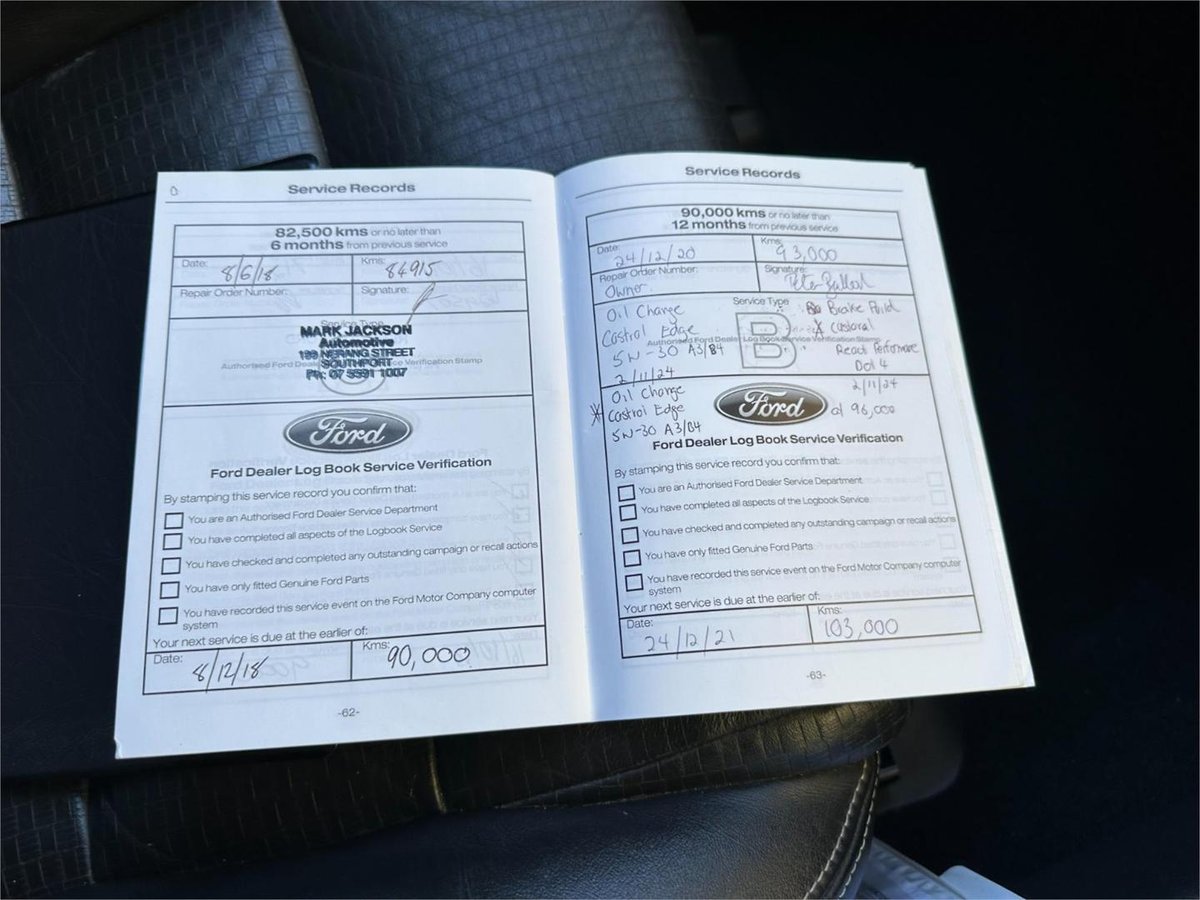 Service Records
82,500 kms or no later than
6 months from previous service
Date: 8/6/18 Kms: 84915
Repair Order Number: Signature:
Service Type
MARK JACKSON
Automotive
199 NERANG STREET
Authorised Ford Dealer Service Verification Stamp
SOUTHPORT
Ph: 07 5591 1007
Ford
Ford Dealer Log Book Service Verification
By stamping this service record you confirm that:
You are an Authorised Ford Dealer Service Department
You have completed all aspects of the Logbook Service
You have checked and completed any outstanding campaign or recall actions
You have only fitted Genuine Ford Parts
You have recorded this service event on the Ford Motor Company computer
system
Your next service is due at the earlier of:
Date: 8/12/18 Kms: 90,000
-62-
Service Records
90,000 kms or no later than
12 months from previous service
Date: 24/12/20 Kms: 93,000
Repair Order Number: Owner Signature: Peter
Service Type
B
Authorised Ford Dealer Log Book Service Verification Stamp
Oil Change
Castrol Edge
5W-30 A3/B4
2/11/24
Brake Fluid
Castoral
React Performance
Dot 4
2/11/24
at 96,000
Oil Change
Castrol Edge
5W-30 A3/B4
Ford
Ford Dealer Log Book Service Verification
By stamping this service record you confirm that:
You are an Authorised Ford Dealer Service Department
You have completed all aspects of the Logbook Service
You have checked and completed any outstanding campaign or recall actions
You have only fitted Genuine Ford Parts
You have recorded this service event on the Ford Motor Company computer
system
Your next service is due at the earlier of:
Date: 24/12/21 Kms: 103,000
-63-